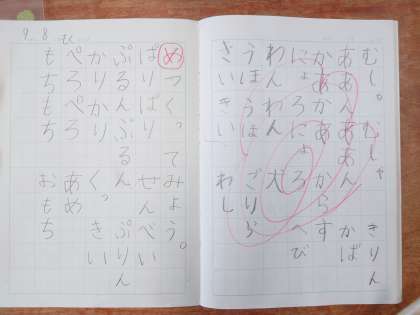 むしゃむしゃ きりん
ああんああん かば
かあかあ からす
にょろにょろ へび
わんわん 犬
うほうほ ごりら
きいきい わし
9.8 もく
めつくってみよう。
ばりばり せんべい
ぷるんぷるん ぷりん
かりかり くっきい
ぺろぺろ あめ
もちもち おもち